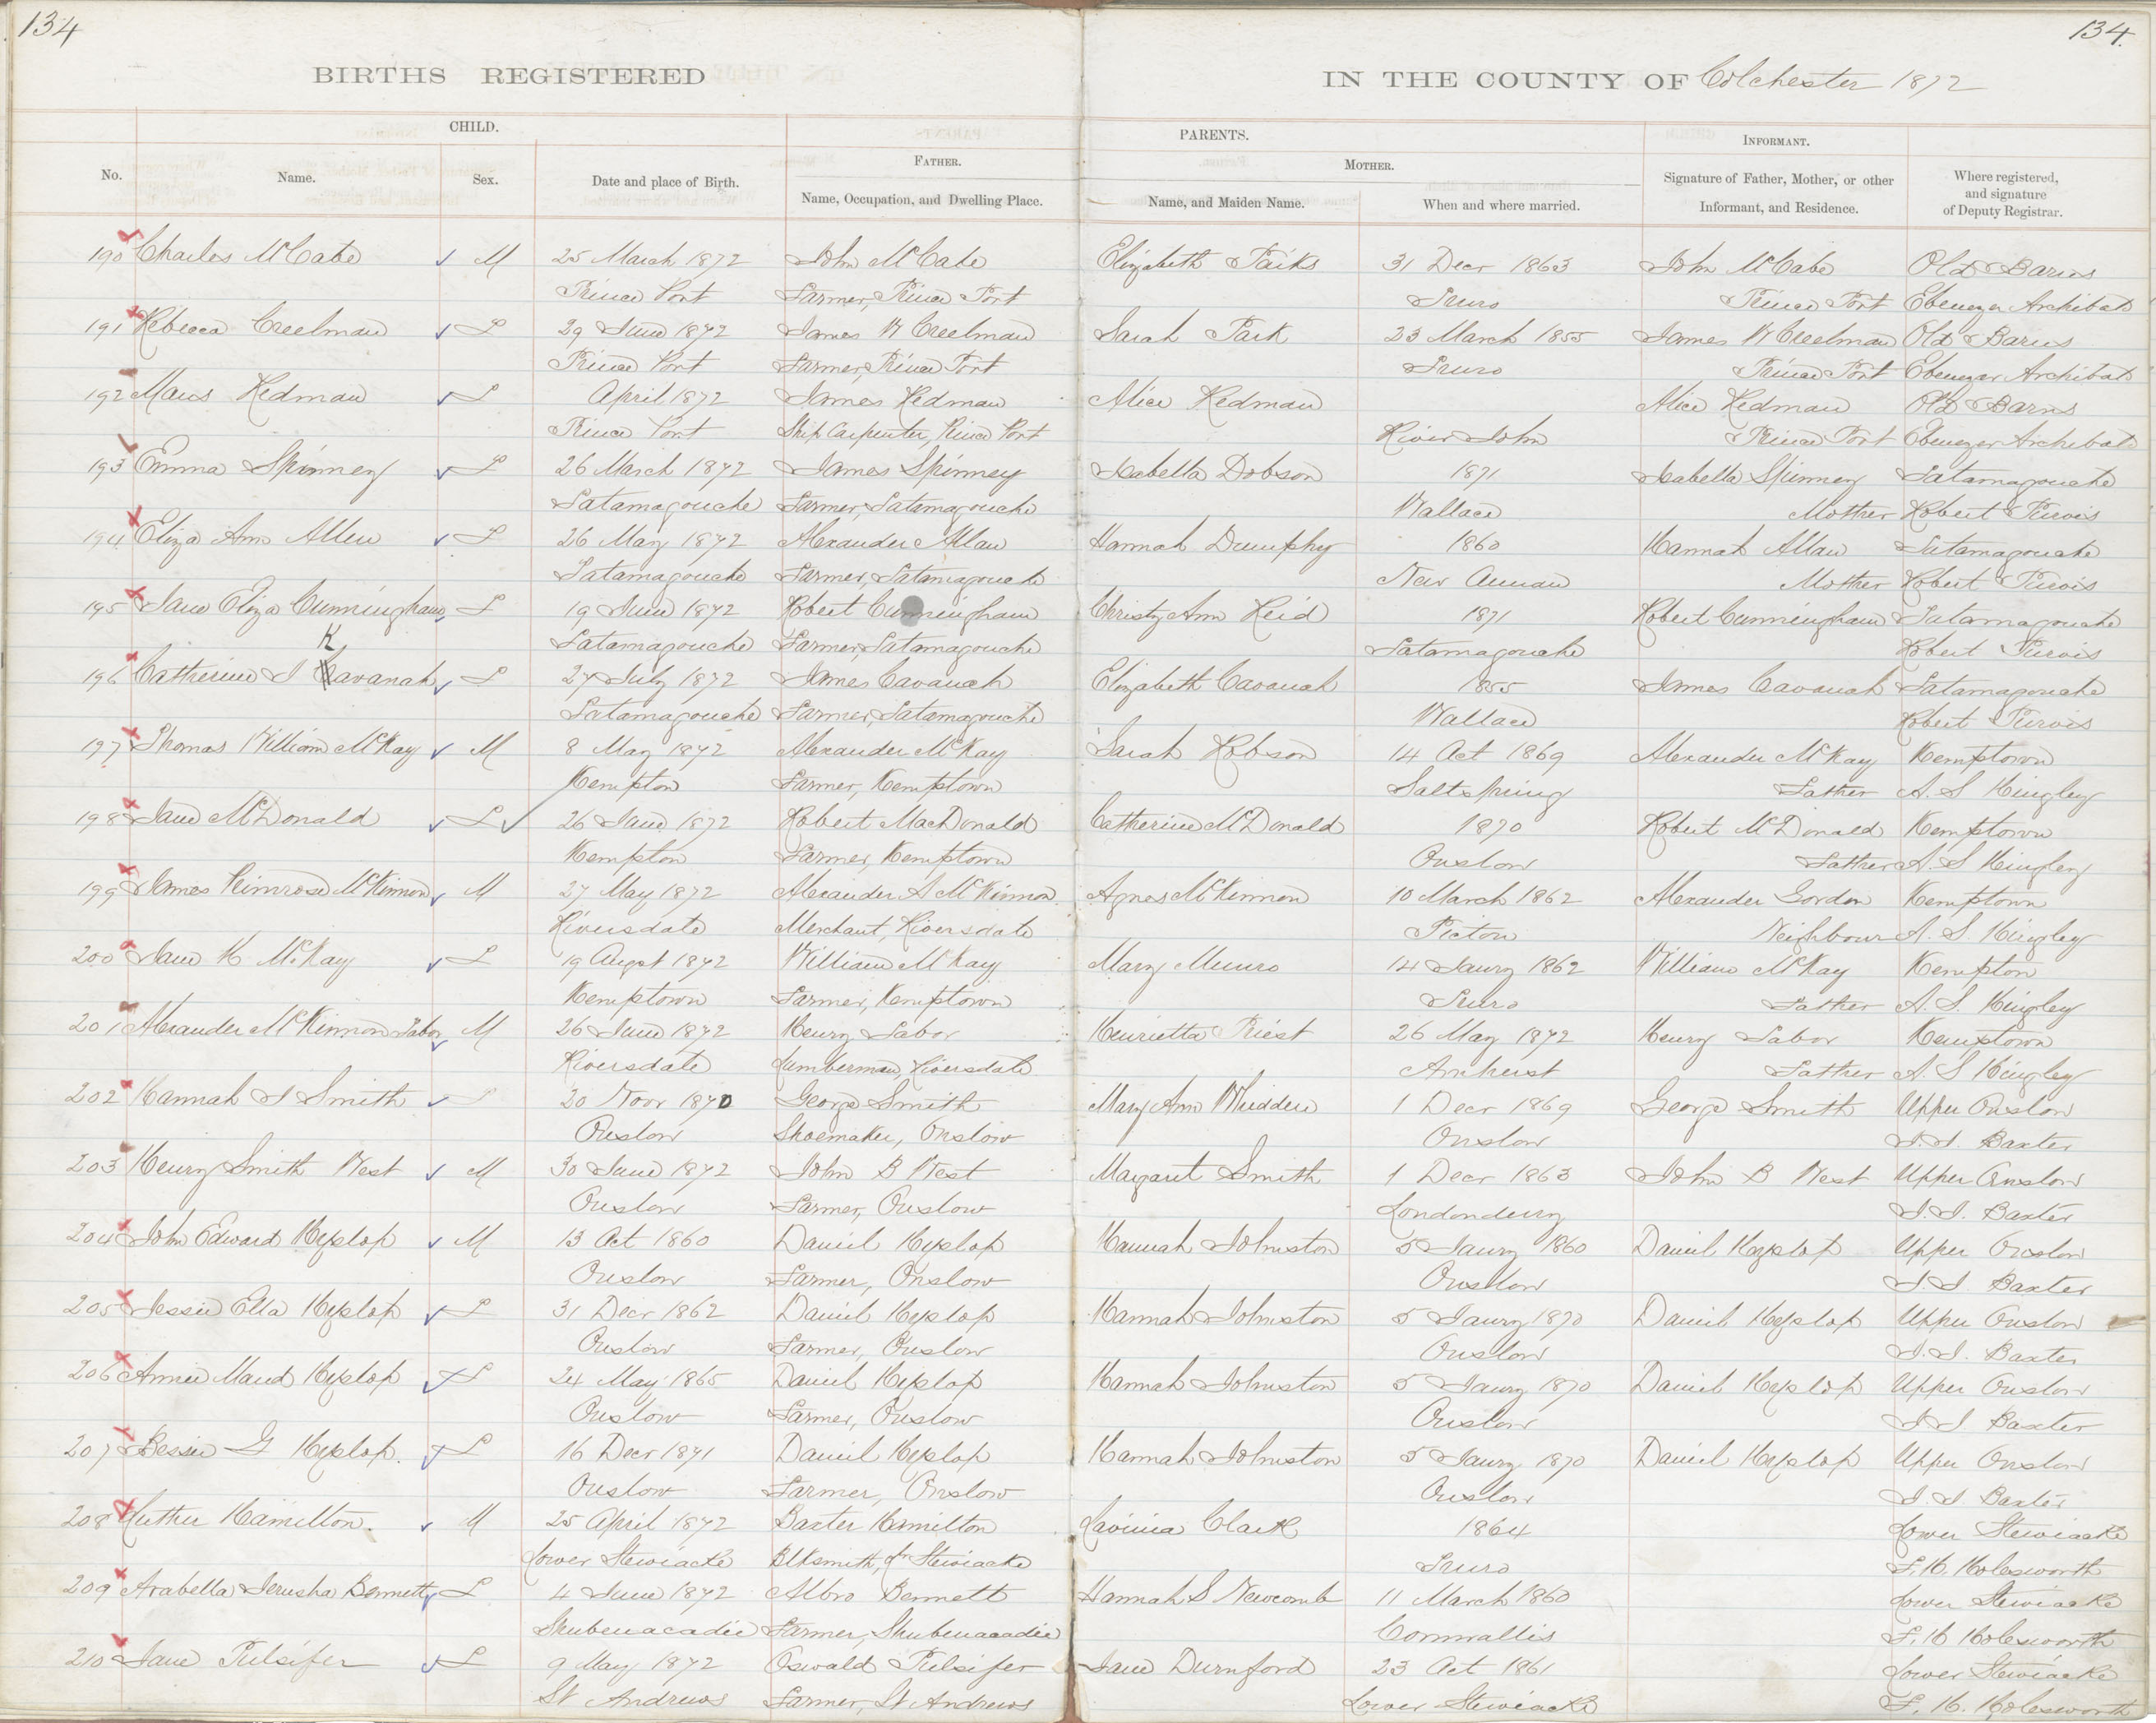 134
134.
BIRTHS REGISTERED IN THE COUNTY OF Colchester 1872
CHILD. PARENTS. INFORMANT.
No. Name. Sex. Date and place of Birth. FATHER. Name, Occupation, and Dwelling Place. MOTHER. Name, and Maiden Name. When and where married. Signature of Father, Mother, or other Informant, and Residence. Where registered, and signature of Deputy Registrar.
190 Charles McCabe M 25 March 1872 John McCabe Elizabeth Parks 31 Decr 1863 John McCabe Old Barns
Prince Port Farmer, Prince Port Truro Prince Port Ebenezer Archibald
191 Rebecca Creelman F 29 June 1872 James W Creelman Sarah Park 23 March 1855 James W Creelman Old Barns
Prince Port Farmer, Prince Port Truro Prince Port Ebenezer Archibald
192 Redman F April 1872 James Redman Alice Redman Alice Redman Old Barns
Prince Port Ship Carpenter, Prince Port River John Prince Port Ebenezer Archibald
193 Emma Spinney F 26 March 1872 James Spinney Isabella Dobson 1871 Isabella Spinney Tatamagouche
Tatamagouche Farmer, Tatamagouche Wallace Mother Robert Purvis
194 Eliza Ann Allen F 26 May 1872 Alexander Allan Hannah Dumphy 1860 Hannah Allan Tatamagouche
Tatamagouche Farmer, Tatamagouche New Annan Mother Robert Purvis
195 Jane Eliza Cunningham F 19 June 1872 Robert Cunningham Christy Ann Reid 1871 Robert Cunningham Tatamagouche
Tatamagouche Farmer, Tatamagouche Tatamagouche Robert Purvis
K
196 Catherine J Cavanah F 27 July 1872 James Cavanah Elizabeth Cavanah 1855 James Cavanah Tatamagouche
Tatamagouche Farmer, Tatamagouche Wallace Robert Purvis
197 Thomas William McKay M 8 May 1872 Alexander McKay Sarah Robson 14 Oct 1869 Alexander McKay Kemptown
Kempton Farmer, Kemptown Saltspring Father A. S Kingley
198 Jane McDonald F 26 June 1872 Robert MacDonald Catherine McDonald 1870 Robert McDonald Kemptown
Kempton Farmer, Kemptown Onslow Father A. S Kingley
199 James Primrose McKinnon M 27 May 1872 Alexander S McKinnon Agnes McKinnon 10 March 1862 Alexander Gordon Kemptown
Riversdale Merchant, Riversdale Picton Neighbour A. S. Kingley
200 Jane H McKay F 19 Augst 1872 William McKay Mary Munro 14 Jaury 1862 William McKay Kempton
Kemptown Farmer, Kemptown Truro Father A. S. Kingley
201 Alexander McKinnon Tabor M 26 June 1872 Henry Tabor Henrietta Priest 26 May 1872 Henry Tabor Kemptown
Riversdale Lumberman, Riversdale Amherst Father A. S Kingley
202 Hannah J Smith F 20 Novr 1870 George Smith Mary Ann Whidden 1 Decr 1869 George Smith Upper Onslow
Onslow Shoemaker, Onslow Onslow J. I. Baxter
203 Henry Smith West M 30 June 1872 John B West Margaret Smith 1 Decr 1863 John B West Upper Onslow
Onslow Farmer, Onslow Londonderry J. I. Baxter
204 John Edward Hyslop M 13 Oct 1860 Daniel Hyslop Hannah Johnston 5 Jaury 1860 Daniel Hyslop Upper Onslow
Onslow Farmer, Onslow Onslow J. I. Baxter
205 Jessie Etta Hyslop F 31 Decr 1862 Daniel Hyslop Hannah Johnston 5 Jaury 1870 Daniel Hyslop Upper Onslow
Onslow Farmer, Onslow Onslow J. I. Baxter
206 Annie Maud Hyslop F 24 May 1865 Daniel Hyslop Hannah Johnston 5 Jaury 1870 Daniel Hyslop Upper Onslow
Onslow Farmer, Onslow Onslow J. I. Baxter
207 Bessie G Hyslop. F 16 Decr 1871 Daniel Hyslop Hannah Johnston 5 Jaury 1870 Daniel Hyslop Upper Onslow
Onslow Farmer, Onslow Onslow J. I Baxter
208 Luther Hamilton. M 25 April 1872 Baxter Hamilton Lavinia Clark 1864 Lower Stewiacke
Lower Stewiacke Blksmith, Lr Stewiacke Truro F. H. Holesworth
209 Arabella Jerusha Bennett F 4 June 1872 Albro Bennett Hannah S Newcomb 11 March 1860 Lower Stewiacke
Shubenacadie Farmer, Shubenacadie Cornwallis F. H Holesworth
210 Jane Pulsifer F 9 May 1872 Oswald Pulsifer Jane Durnford 23 Oct 1861 Lower Stewiacke
St Andrews Farmer, St Andrews Lower Stewiacke F. H. Holesworth